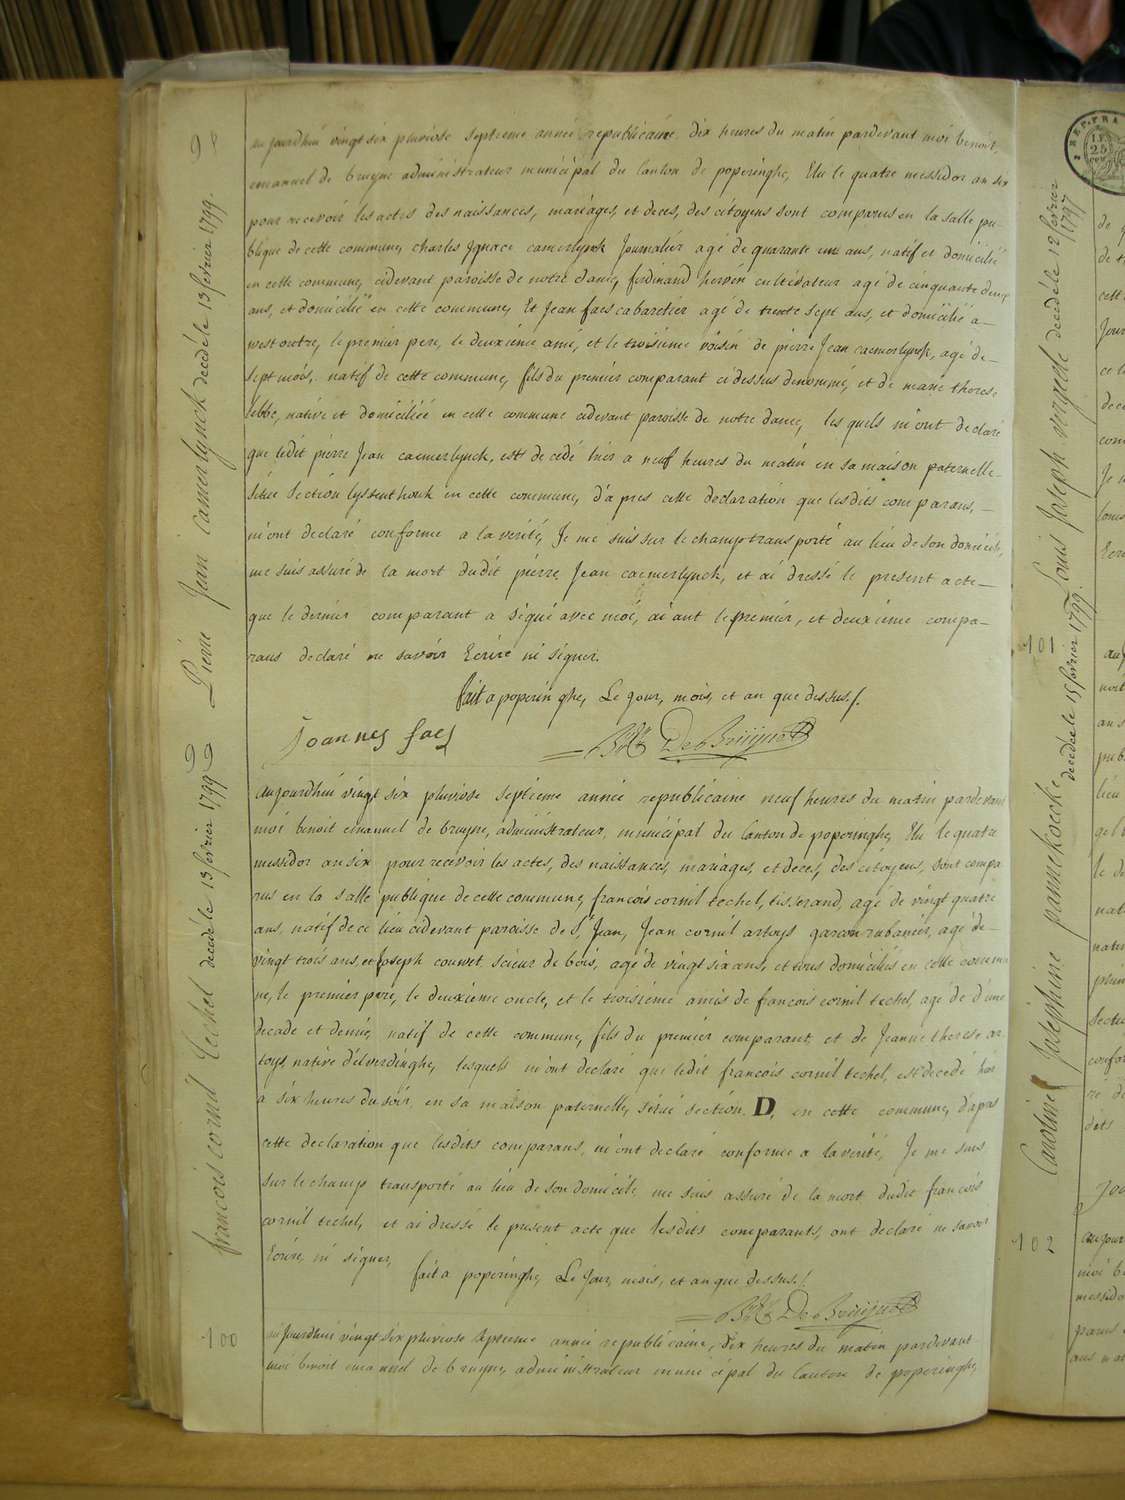 98
Pierre Jean Camerlynck decédé le 13 février 1799.
aujourdhui vingt six pluviose septieme année republicaine dix heures du matin pardevant moi benoit,
emanuel de bruyne administrateur municipal du Canton de poperinghe, Elu le quatre messidor an six
pour recevoir les actes des naissances, mariages, et deces, des citoyens sont comparus en la salle pu-
blique de cette commune, charles Ignace camerlynck Journalier agé de quarante un ans, natif et domicilié
en cette commune, cidevant paroisse de notre dame, ferdinand hervein cultivateur agé de cinquante deux
ans, et domicilié en cette commune, Et Jean faes cabaretier agé de trente sept ans, et domicilié a
westoutre, le premier pere, le deuxieme ami, et le troisiéme voisin de pierre Jean caemerlynck, agé de
sept mois, natif de cette commune, fils du premier comparant cidessus denommé, et de marie therese
lebbe, native et domiciliée en cette commune cidevant paroisse de notre dame, les quels m'ont declaré
que ledit pierre Jean caemerlynck, est decedé hier a neuf heures du matin en sa maison paternelle
située Section lyssenthouk en cette commune, d'apres cette declaration que lesdits comparans,
m'ont declaré conforme a la verité, Je me suis sur le champ transporté au lieu de son domicile,
me suis assuré de la mort dudit pierre Jean caemerlynck, et ai dressé le present acte
que le dernier comparant a signé avec moi, aiant le premier, et deuxieme compa-
rans declaré ne savoir Ecrire ni signer.
fait a poperinghe, Le Jour, mois, et an que dessus./.
Joannes faes
Bt. De Bruijne
99
françois cornil techel decédé le 13 février 1799
aujourdhui vingt six pluviose septieme année republicaine neuf heures du matin pardevant
moi benoit emanuel de bruyne, administrateur, municipal du Canton de poperinghe, Elu le quatre
messidor an six pour recevoir les actes, des naissances, mariages, et deces, des citoyens, sont compa
rus en la salle publique de cette commune, françois cornil techel, tisserand, agé de vingt quatre
ans, natif de ce lieu cidevant paroisse de St. Jean, Jean cornil artoys garçon rubanier, agé de
vingt trois ans, et Joseph couwet scieur de bois, agé de vingt six ans, et tous domiciliés en cette commu
ne, le premier pere, le deuxieme oncle, et le troisiéme amis de françois cornil techel, agé de d'une
decade et demie, natif de cette commune, fils du premier comparant, et de Jeanne therese ar
toys, native d'elverdinghe, lesquels m'ont declaré que ledit françois cornil techel, est decedé hier
a six heures du soir, en sa maison paternelle, située section. D, en cette commune, d'apres
cette declaration que lesdits comparans, m'ont declaré conforme a la verité, Je me suis
sur le champ transporté au lieu de son domicile, me suis assuré de la mort dudit françois
cornil techel, et ai dressé le present acte que lesdits comparants, ont declaré ne savoir
Ecrire, ni signer,
fait a poperinghe, Le Jour, mois, et an que dessus./.
Bt. De Bruijne
100
aujourdhui vingt six pluviose septieme année republicaine, dix heures du matin pardevant
moi benoit emanuel de bruyne, administrateur municipal du Canton de poperinghe,
REP. FRA
25
Louis Joseph vergele decédé le 12 février
1797
101
Caroline Josephine pannekoecke
decédée le 15 février 1799.
102